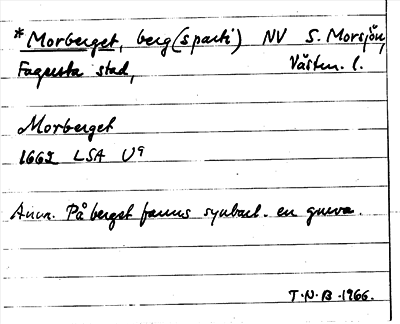 *Morberget, berg (sparti) NV S. Morsjön,
Fagersta stad, Västm. l.
Morberget
1662 LSA U9
Anm. På berget fanns synbarl. en gruva.
T.N.B. 1966.